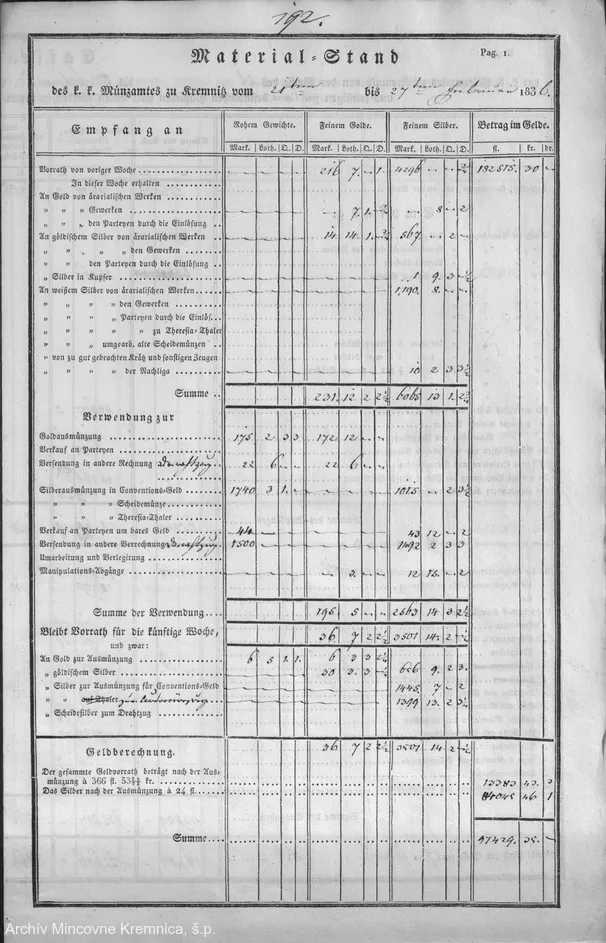 192.
Material-Stand
Pag. 1.
des k. k. Münzamtes zu Kremnitz vom 21ten bis 27ten Februar 1836.
Empfang an | Rohem Gewichte. | Feinem Golde. | Feinem Silber. | Betrag im Gelde.
Mark. Loth. Q. D. | Mark. Loth. Q. D. | Mark. Loth. Q. D. | fl. kr. dr.
Vorrath von voriger Woche 216 7 - 1 4296 - - 182515. 30 -
In dieser Woche erhalten
An Gold von ärarialischen Werken
" " " Gewerken 7. 1. 8 - 2
" " " den Parteyen durch die Einlösung
An göldischem Silber von ärarialischen Werken 14 14 1. 567 - 2
" " " " den Gewerken
" " " den Parteyen durch die Einlösung
" Silber in Kupfer 1 9. 3
An weißem Silber von ärarialischen Werken 1,190. 8. - -
" " " " den Gewerken
" " " " Parteyen durch die Einlös.
" " " " " zu Theresia-Thaler
" " " " umgearb. alte Scheidemünzen
" von zu gut gebrachten Krätz und sonstigen Zeugen
" " " " der Nachliga 10 2 3 3½
Summe 231. 12 2 2½ 6065 13 1. 2½
Verwendung zur
Goldausmünzung 175 2 3 3 172 12 - -
Verkauf an Parteyen
Versendung in andere Rechnung 22 6 - - 22 6 - -
Silberausmünzung in Conventions-Geld 1740 3 1. - 1015 - 2 3½
" " " Scheidemünze
" " " Theresia-Thaler
Verkauf an Parteyen um bares Geld 44 - - 43 12 - 2
Versendung in andere Verrechnung 1500 - - 1492 2 3 3
Umarbeitung und Verlegirung
Manipulations-Abgänge 3. - - 12 15. - 2
Summe der Verwendung 195 5 - - 2563 14 3 2½
Bleibt Vorrath für die künftige Woche, 36 7 2 2½ 3501 14 2
und zwar:
An Gold zur Ausmünzung 6 5 1. 1. 6 3 3 2½
" göldischem Silber 30 3. 3 656 9. 2 3.
" Silber zur Ausmünzung für Conventions-Geld 1445. 7 - 2
" " auf Thaler 1399 13. 2 3½
" Scheidesilber zum Drahtzug
Geldberechnung. 36 7 2 2½ 3501 14 2
Der gesammte Geldvorrath beträgt nach der Aus-
münzung à 366 fl. 53 kr. 13383 43. 3
Das Silber nach der Ausmünzung à 24 fl. 84045 46 1
Summe 97429. 30. -
Archív Mincovne Kremnica, š.p.